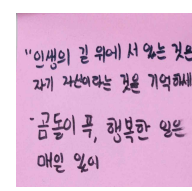 "인생의 길 위에 서 있는 것은
자기 자신이라는 것을 기억하세
-곰돌이 푹, 행복한 일은
매일 있어